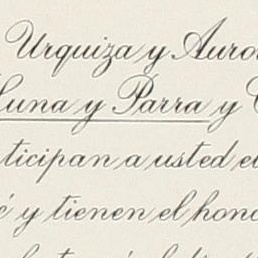 Urquiza y Auro
Luna y Parra y
ticipan a usted e
é y tienen el hono